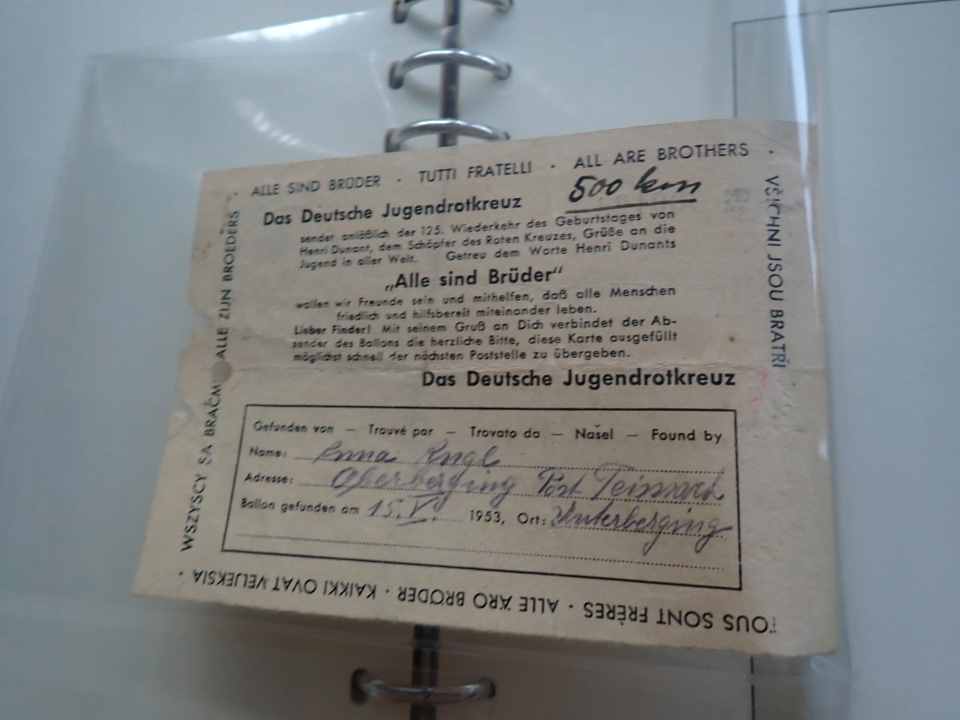 · ALLE SIND BRÜDER · TUTTI FRATELLI · ALL ARE BROTHERS ·
500 km
Das Deutsche Jugendrotkreuz
sendet anläßlich der 125. Wiederkehr des Geburtstages von
Henri Dunant, dem Schöpfer des Roten Kreuzes, Grüße an die
Jugend in aller Welt. Getreu dem Worte Henri Dunants
„Alle sind Brüder“
wollen wir Freunde sein und mithelfen, daß alle Menschen
friedlich und hilfsbereit miteinander leben.
Lieber Finder! Mit seinem Gruß an Dich verbindet der Ab-
sender des Ballons die herzliche Bitte, diese Karte ausgefüllt
möglichst schnell der nächsten Poststelle zu übergeben.
Das Deutsche Jugendrotkreuz
Gefunden von — Trouvé par — Trovato da — Našel — Found by
Name: Anna Engl
Adresse: Oberberging Post Teisnach
Ballon gefunden am 15. V. 1953, Ort: Unterberging
VŠICHNI JSOU BRATŘI
TOUS SONT FRÈRES · ALLE ÄRO BRØDER · KAIKKI OVAT VELJEKSIA ·
WSZYSCY SA BRAĆMI ALLE ZIJN BROEDERS